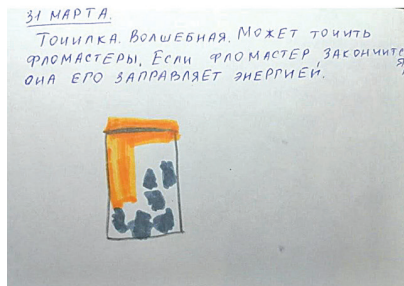 31 МАРТА.
ТОЧИЛКА. ВОЛШЕБНАЯ. МОЖЕТ ТОЧИТЬ
ФЛОМАСТЕРЫ. ЕСЛИ ФЛОМАСТЕР ЗАКОНЧИТСЯ,
ОНА ЕГО ЗАПРАВЛЯЕТ ЭНЕРГИЕЙ.